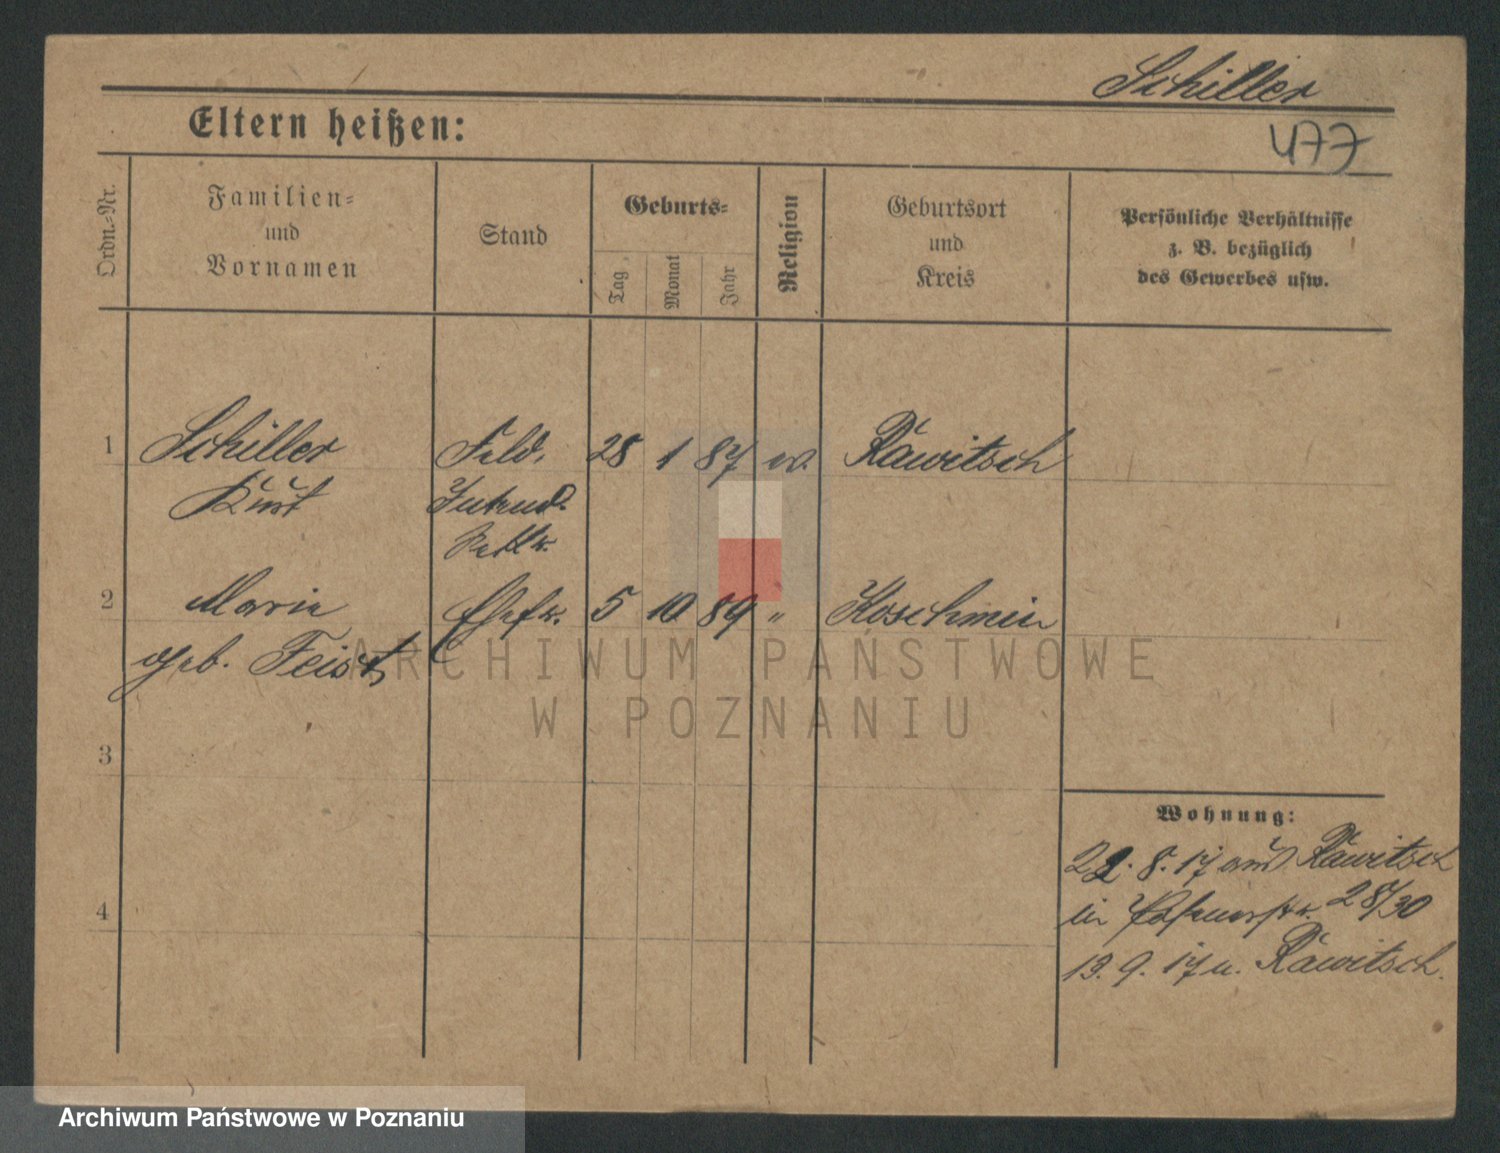 Schiller
477
Eltern heißen:
Ordn.-Nr.
Familien-
und
Vornamen
Stand
Geburts-
Tag
Monat
Jahr
Religion
Geburtsort
und
Kreis
Persönliche Verhältnisse
z. B. bezüglich
des Gewerbes usw.
1 Schiller Feld. 28 1 87 ev. Rawitsch
Kurt Intend.
2 Marie Ehefr. 5 10 89 " Koschmin
geb. Feist
ARCHIWUM PAŃSTWOWE
W POZNANIU
3
Wohnung:
22. 8. 17 aus Rawitsch
in Posenerstr. 28/30
4
13. 9. 17 n. Rawitsch.
Archiwum Państwowe w Poznaniu